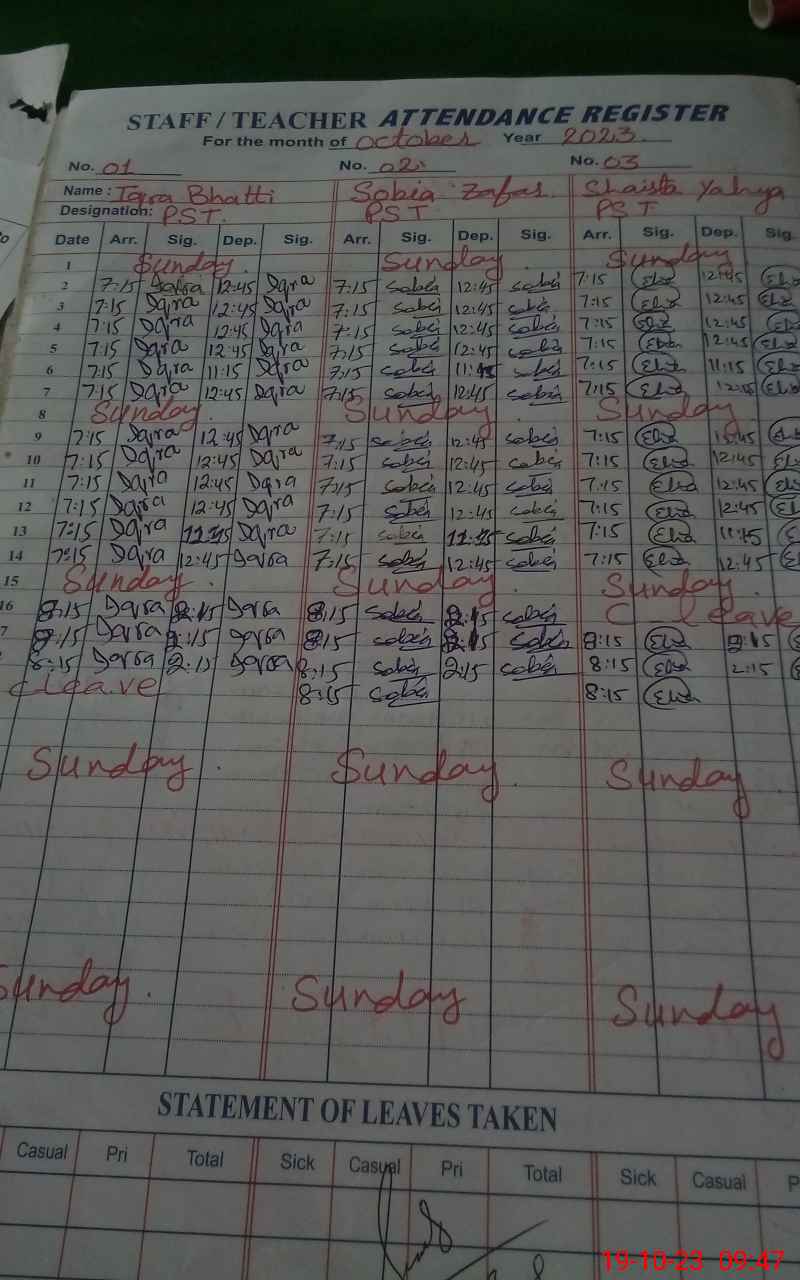 STAFF / TEACHER ATTENDANCE REGISTER
For the month of October Year 2023
No. 01 No. 02 No. 03
Name: Iqra Bhatti Sobia Zafar Shaista Yahya
Designation: PST. PST PST
Date Arr. Sig. Dep. Sig. Arr. Sig. Dep. Sig. Arr. Sig. Dep. Sig
1 Sunday. Sunday. Sunday
2 7:15 Iqra 12:45 Iqra 7:15 sobia 12:45 sobia 7:15 12:45
3 7:15 Iqra 12:45 Iqra 7:15 sobia 12:45 sobia 7:15 12:45
4 7:15 Iqra 12:45 Iqra 7:15 sobia 12:45 sobia 7:15 12:45
5 7:15 Iqra 12:45 Iqra 7:15 sobia 12:45 sobia 7:15 12:45
6 7:15 Iqra 11:15 Iqra 7:15 sobia 11:15 sobia 7:15 11:15
7 7:15 Iqra 12:45 Iqra 7:15 sobia 12:45 sobia 7:15
8 Sunday. Sunday. Sunday
9 7:15 Iqra 12:45 Iqra 7:15 sobia 12:45 sobia 7:15 12:45
10 7:15 Iqra 12:45 Iqra 7:15 sobia 12:45 sobia 7:15 12:45
11 7:15 Iqra 12:45 Iqra 7:15 sobia 12:45 sobia 7:15 12:45
12 7:15 Iqra 12:45 Iqra 7:15 sobia 12:45 sobia 7:15 12:45
13 7:15 Iqra Iqra 7:15 sobia sobia 7:15 11:15
14 7:15 Iqra 12:45 Iqra 7:15 sobia 12:45 sobia 7:15 12:45
15 Sunday. Sunday Sunday.
16 8:15 Iqra 2:15 Iqra 8:15 sobia 2:15 sobia C. leave
7 8:15 Iqra 2:15 Iqra 8:15 sobia 2:15 sobia 8:15 2:15
8:15 Iqra 2:15 Iqra 8:15 sobia 2:15 sobia 8:15 2:15
C leave 8:15 sobia 8:15
Sunday. Sunday. Sunday
Sunday. Sunday Sunday
STATEMENT OF LEAVES TAKEN
Casual Pri Total Sick Casual Pri Total Sick Casual P
19-10-23 09:47